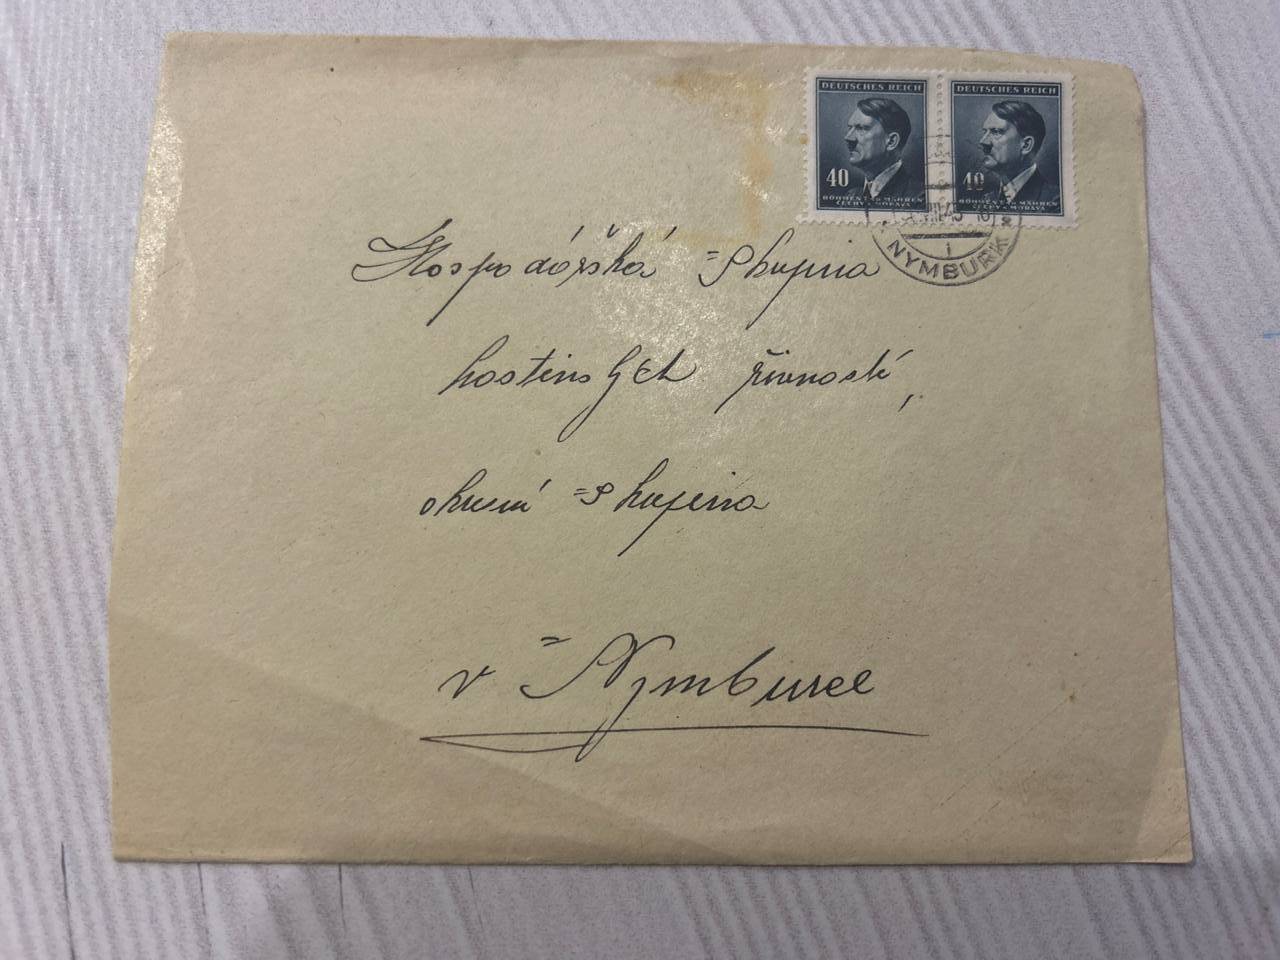 DEUTSCHES REICH DEUTSCHES REICH
40 40
BÖHMEN UND MÄHREN BÖHMEN UND MÄHREN
ČECHY A MORAVA ČECHY A MORAVA
NYMBURK
Hospodářská skupina
hostinských živností,
okresní skupina
v Nymburce